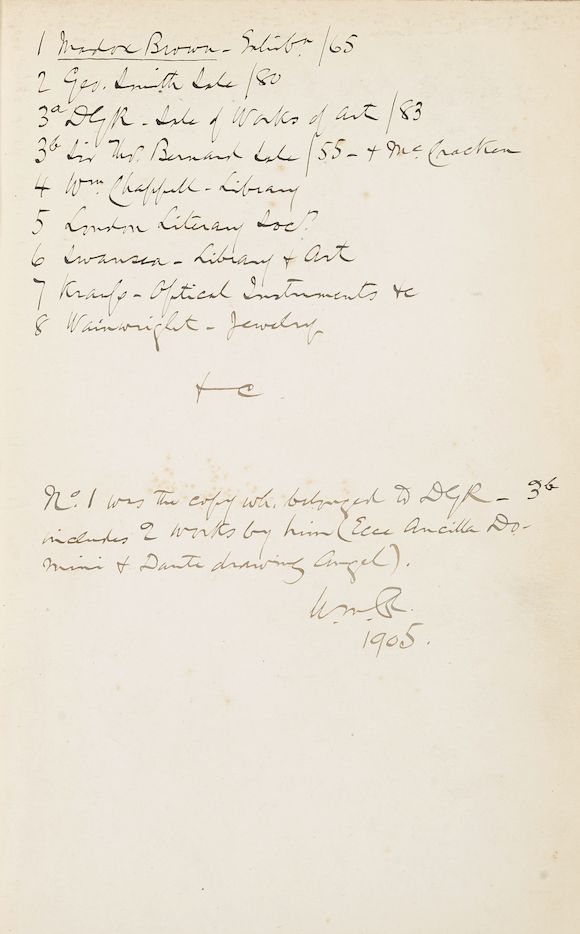 1 Madox Brown - Exhibn /65
2 Geo. Smith Sale /80
3a DGR - Sale of Works of Art /83
3b Sir Thos. Bernard Sale /55 - + McCracken
4 Wm Chappell - Library
5 London Literary Socy.
6 Swansea - Library + Art
7 Krauss - Optical Instruments &c
8 Wainwright - Jewelry
&c
No. 1 was the copy wh. belonged to DGR - 3b
includes 2 works by him (Ecce Ancilla Do-
mini + Dante drawing Angel).
W.m.R.
1905.